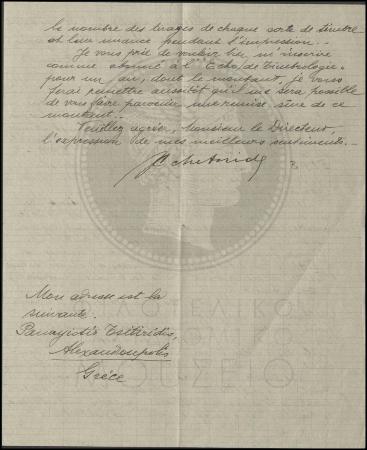 le nombre des tirages de chaque sorte de timbre
et leur nuance pendant l'impression.
Je vous prie de vouloir bien m'inscrire
comme abonné à l'Echo de Timbrologie
pour un an, dont le montant, je vous
ferai remettre aussitôt qu'il me sera possible
de vous faire parvenir une remise sûre de ce
montant.
Veuillez agréer, Monsieur le Directeur,
l'expression de mes meilleurs sentiments.
Mon adresse est la
suivante.
Panayiotis Tsibiridis,
Alexandroupolis
Grèce